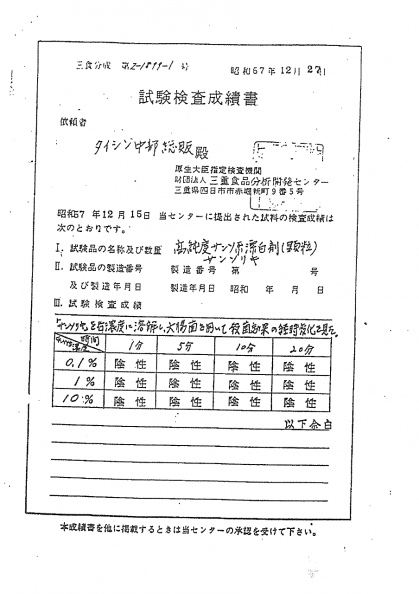 三食分成 第2-1899-1号
昭和57年12月27日
試験検査成績書
依頼者
タイシン中部総販 殿
厚生大臣指定検査機関
財団法人 三重食品分析開発センター
三重県四日市市赤堀新町9番5号
昭和57年12月15日 当センターに提出された試料の検査成績は
次のとおりです。
I. 試験品の名称及び数量 高純度サンソ系漂白剤(顆粒)
サンソリヤ
II. 試験品の製造番号 製造番号 第 号
及び製造年月日 製造年月日 昭和 年 月 日
III. 試験検査成績
サンソリヤを各濃度に溶解し、大腸菌を用いて殺菌効果の経時変化を見た。
時間 濃度 1分 5分 10分 20分
0.1% 陰性 陰性 陰性 陰性
1% 陰性 陰性 陰性 陰性
10% 陰性 陰性 陰性 陰性
以下余白
本成績書を他に掲載するときは当センターの承認を受けて下さい。